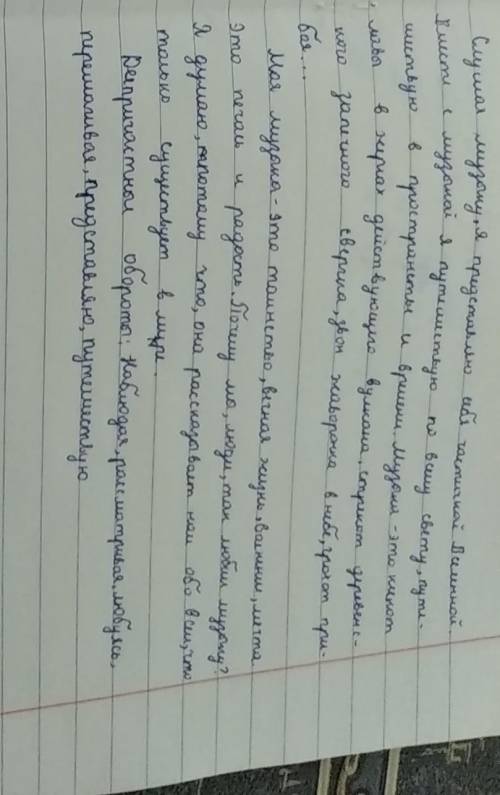 Слушая музыку, я представляю себя частичкой Вселенной.
Вместе с музыкой я путешествую по всему свету, путе-
шествую в пространстве и времени. Музыка - это клекот
лавы в жерлах действующего вулкана, стрекот деревенс-
кого запечного сверчка, звон жаворонка в небе, грохот при-
боя...
Моя музыка - это таинство, вечная жизнь, величие, мечта.
Это печаль и радость. Почему мы, люди, так любим музыку?
Я думаю, потому что, она рассказывает нам обо всем, что
только существует в мире.
Деепричастные обороты: Наблюдая, рассматривая, любуясь,
перемалывая, представляю, путешествую